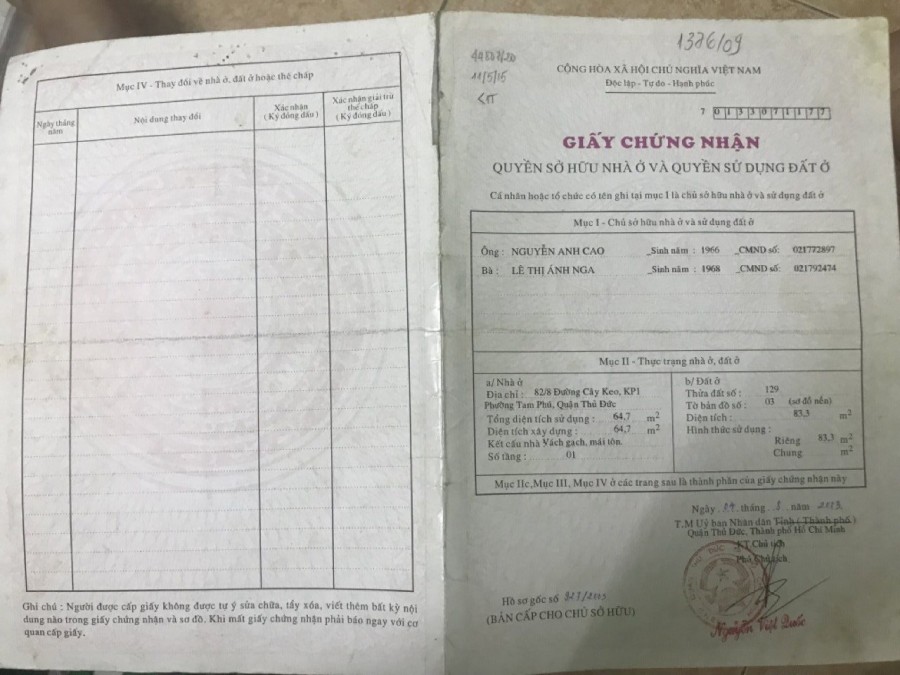 Mục IV - Thay đổi về nhà ở, đất ở hoặc thế chấp
Ngày tháng năm
Nội dung thay đổi
Xác nhận (Ký đóng dấu)
Xác nhận giải trừ thế chấp (Ký đóng dấu)
Ghi chú : Người được cấp giấy không được tự ý sửa chữa, tẩy xóa, viết thêm bất kỳ nội
dung nào trong giấy chứng nhận và sơ đồ. Khi mất giấy chứng nhận phải báo ngay với cơ
quan cấp giấy.
1376/09
11/5/15
CỘNG HÒA XÃ HỘI CHỦ NGHĨA VIỆT NAM
Độc lập - Tự do - Hạnh phúc
7 0133071177
GIẤY CHỨNG NHẬN
QUYỀN SỞ HỮU NHÀ Ở VÀ QUYỀN SỬ DỤNG ĐẤT Ở
Cá nhân hoặc tổ chức có tên ghi tại mục I là chủ sở hữu nhà ở và sử dụng đất ở
Mục I - Chủ sở hữu nhà ở và sử dụng đất ở
Ông : NGUYỄN ANH CAO _Sinh năm : 1966 _CMND số: 021772897
Bà : LÊ THỊ ÁNH NGA _Sinh năm : 1968 _CMND số: 021792474
Mục II - Thực trạng nhà ở, đất ở
a/ Nhà ở
Địa chỉ : 82/8 Đường Cây Keo, KP1
Phường Tam Phú, Quận Thủ Đức
Tổng diện tích sử dụng : 64,7 m2
Diện tích xây dựng : 64,7 m2
Kết cấu nhà Vách gạch, mái tôn.
Số tầng : 01
b/ Đất ở
Thửa đất số : 129
Tờ bản đồ số : 03 (sơ đồ nền)
Diện tích : 83,3 m2
Hình thức sử dụng :
Riêng 83,3 m2
Chung m2
Mục IIc,Mục III, Mục IV ở các trang sau là thành phần của giấy chứng nhận này
Ngày 29 tháng 8 năm 2003
T.M Uỷ ban Nhân dân Tỉnh ( Thành phố )
Quận Thủ Đức, Thành phố Hồ Chí Minh
KT.Chủ tịch
Phó Chủ tịch
Hồ sơ gốc số 323/2003
(BẢN CẤP CHO CHỦ SỞ HỮU)
Nguyễn Việt Quốc